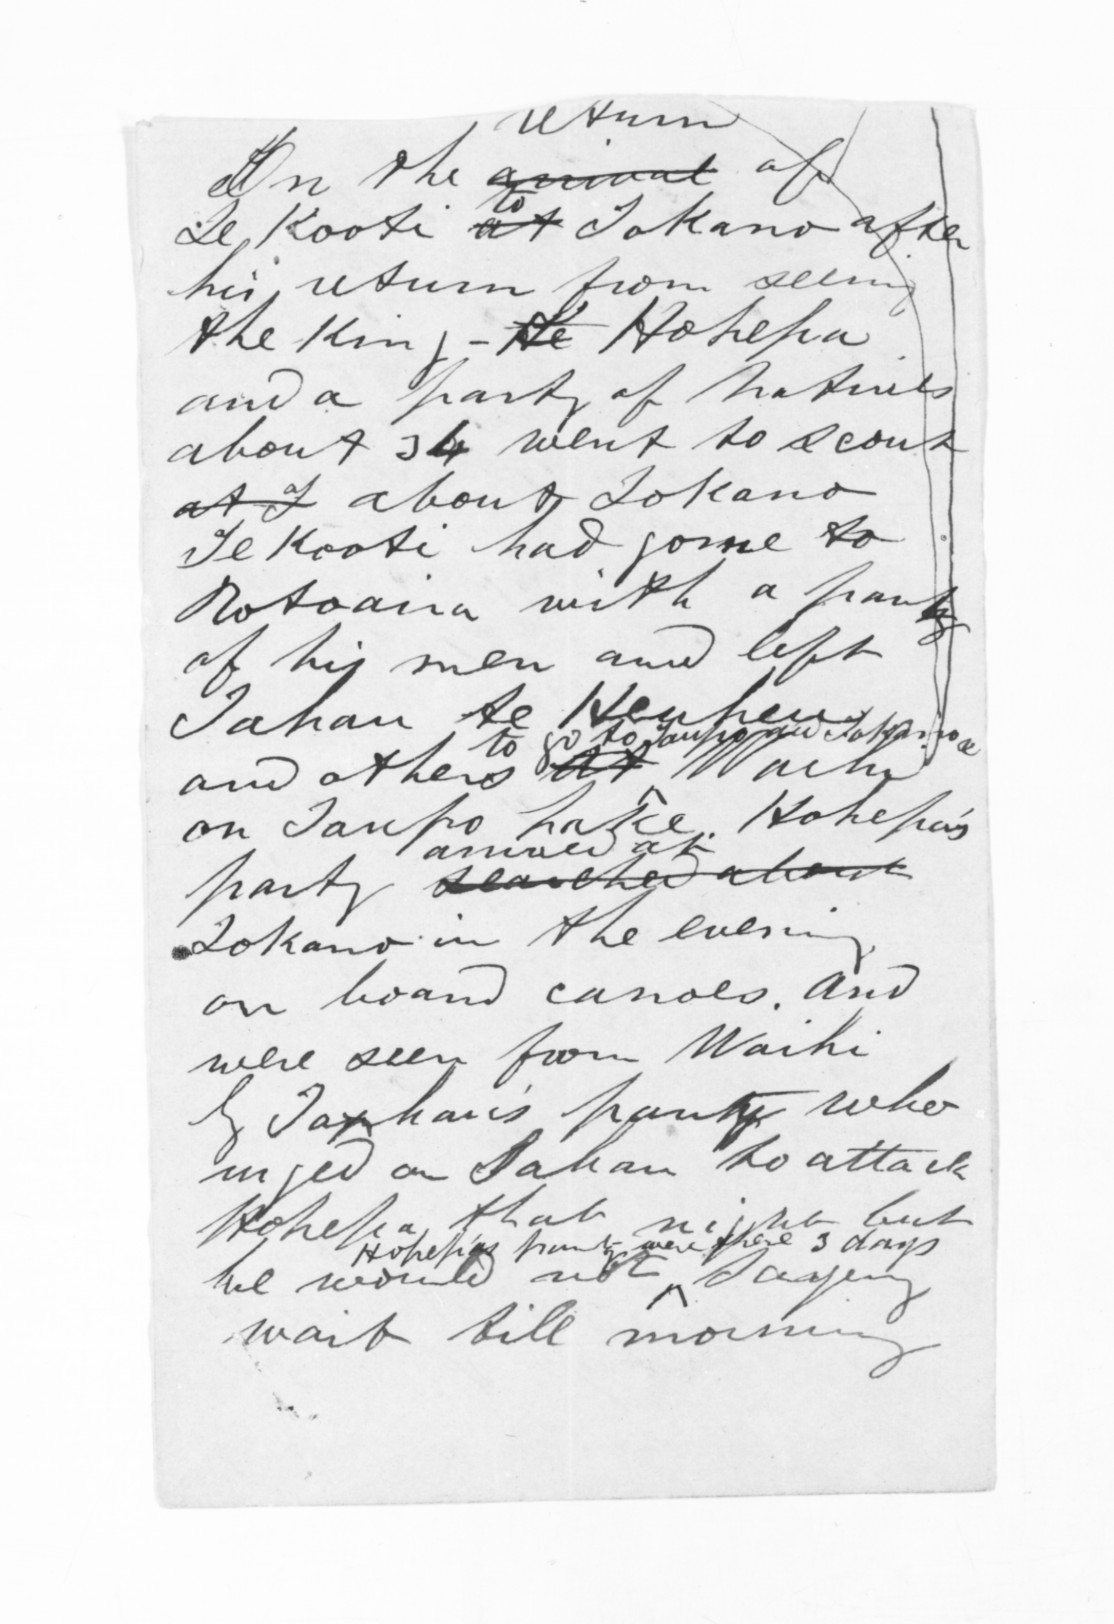 return
On the arrival of
Te Kooti at to Tokano after
his return from seeing
the King - He Hohepa
and a party of natives
about 34 went to scout
at T about Tokano
Te Kooti had gone to
Rotoaira with a party
of his men and left
Tahau te Heuheu
to go to Taupo and Tokano
and others at Waihi
on Taupo Lake. Hohepa's
arrived at
party searched about
Tokano in the evening
on board canoes. And
were seen from Waihi
by Tahau's party who
urged on Tahau to attack
Hohepa that night but
Hohepa's party were there 3 days
he would not saying
wait till morning